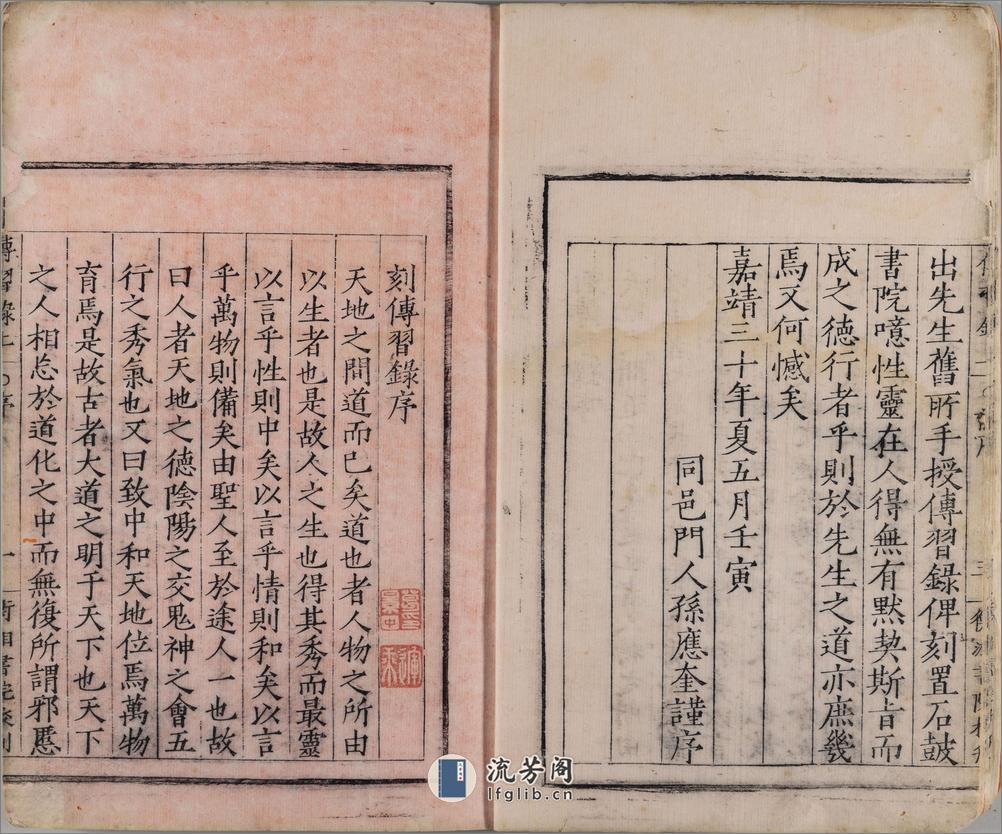 出先生舊所手授傳習錄俾刻置石鼓
書院噫性靈在人得無有黙契斯旨而
成之徳行者乎則於先生之道亦庶幾
焉又何憾矣
嘉靖三十年夏五月壬寅
同邑門人孫應奎謹序
刻傳習錄序
天地之間道而已矣道也者人物之所由
以生者也是故人之生也得其秀而最靈
以言乎性則中矣以言乎情則和矣以言
乎萬物則備矣由聖人至於途人一也故
曰人者天地之德陰陽之交鬼神之會五
行之秀氣也又曰致中和天地位焉萬物
育焉是故古者大道之明于天下也天下
之人相忘於道化之中而無復所謂邪慝
傳習錄上 序
一
流芳阁
lfglib.cn